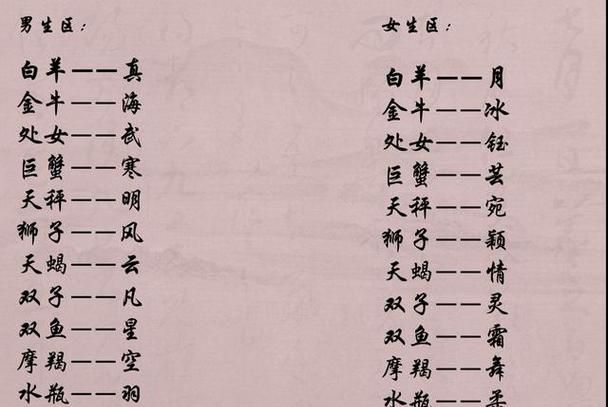 男生区：
白羊——真
金牛——海
处女——武
巨蟹——寒
天秤——明
狮子——风
天蝎——云
双子——凡
双鱼——星
摩羯——空
水瓶——羽
女生区：
白羊——月
金牛——冰
处女——钰
巨蟹——芸
天秤——宛
狮子——颖
天蝎——情
双子——灵
双鱼——霜
摩羯——舞
水瓶——柔